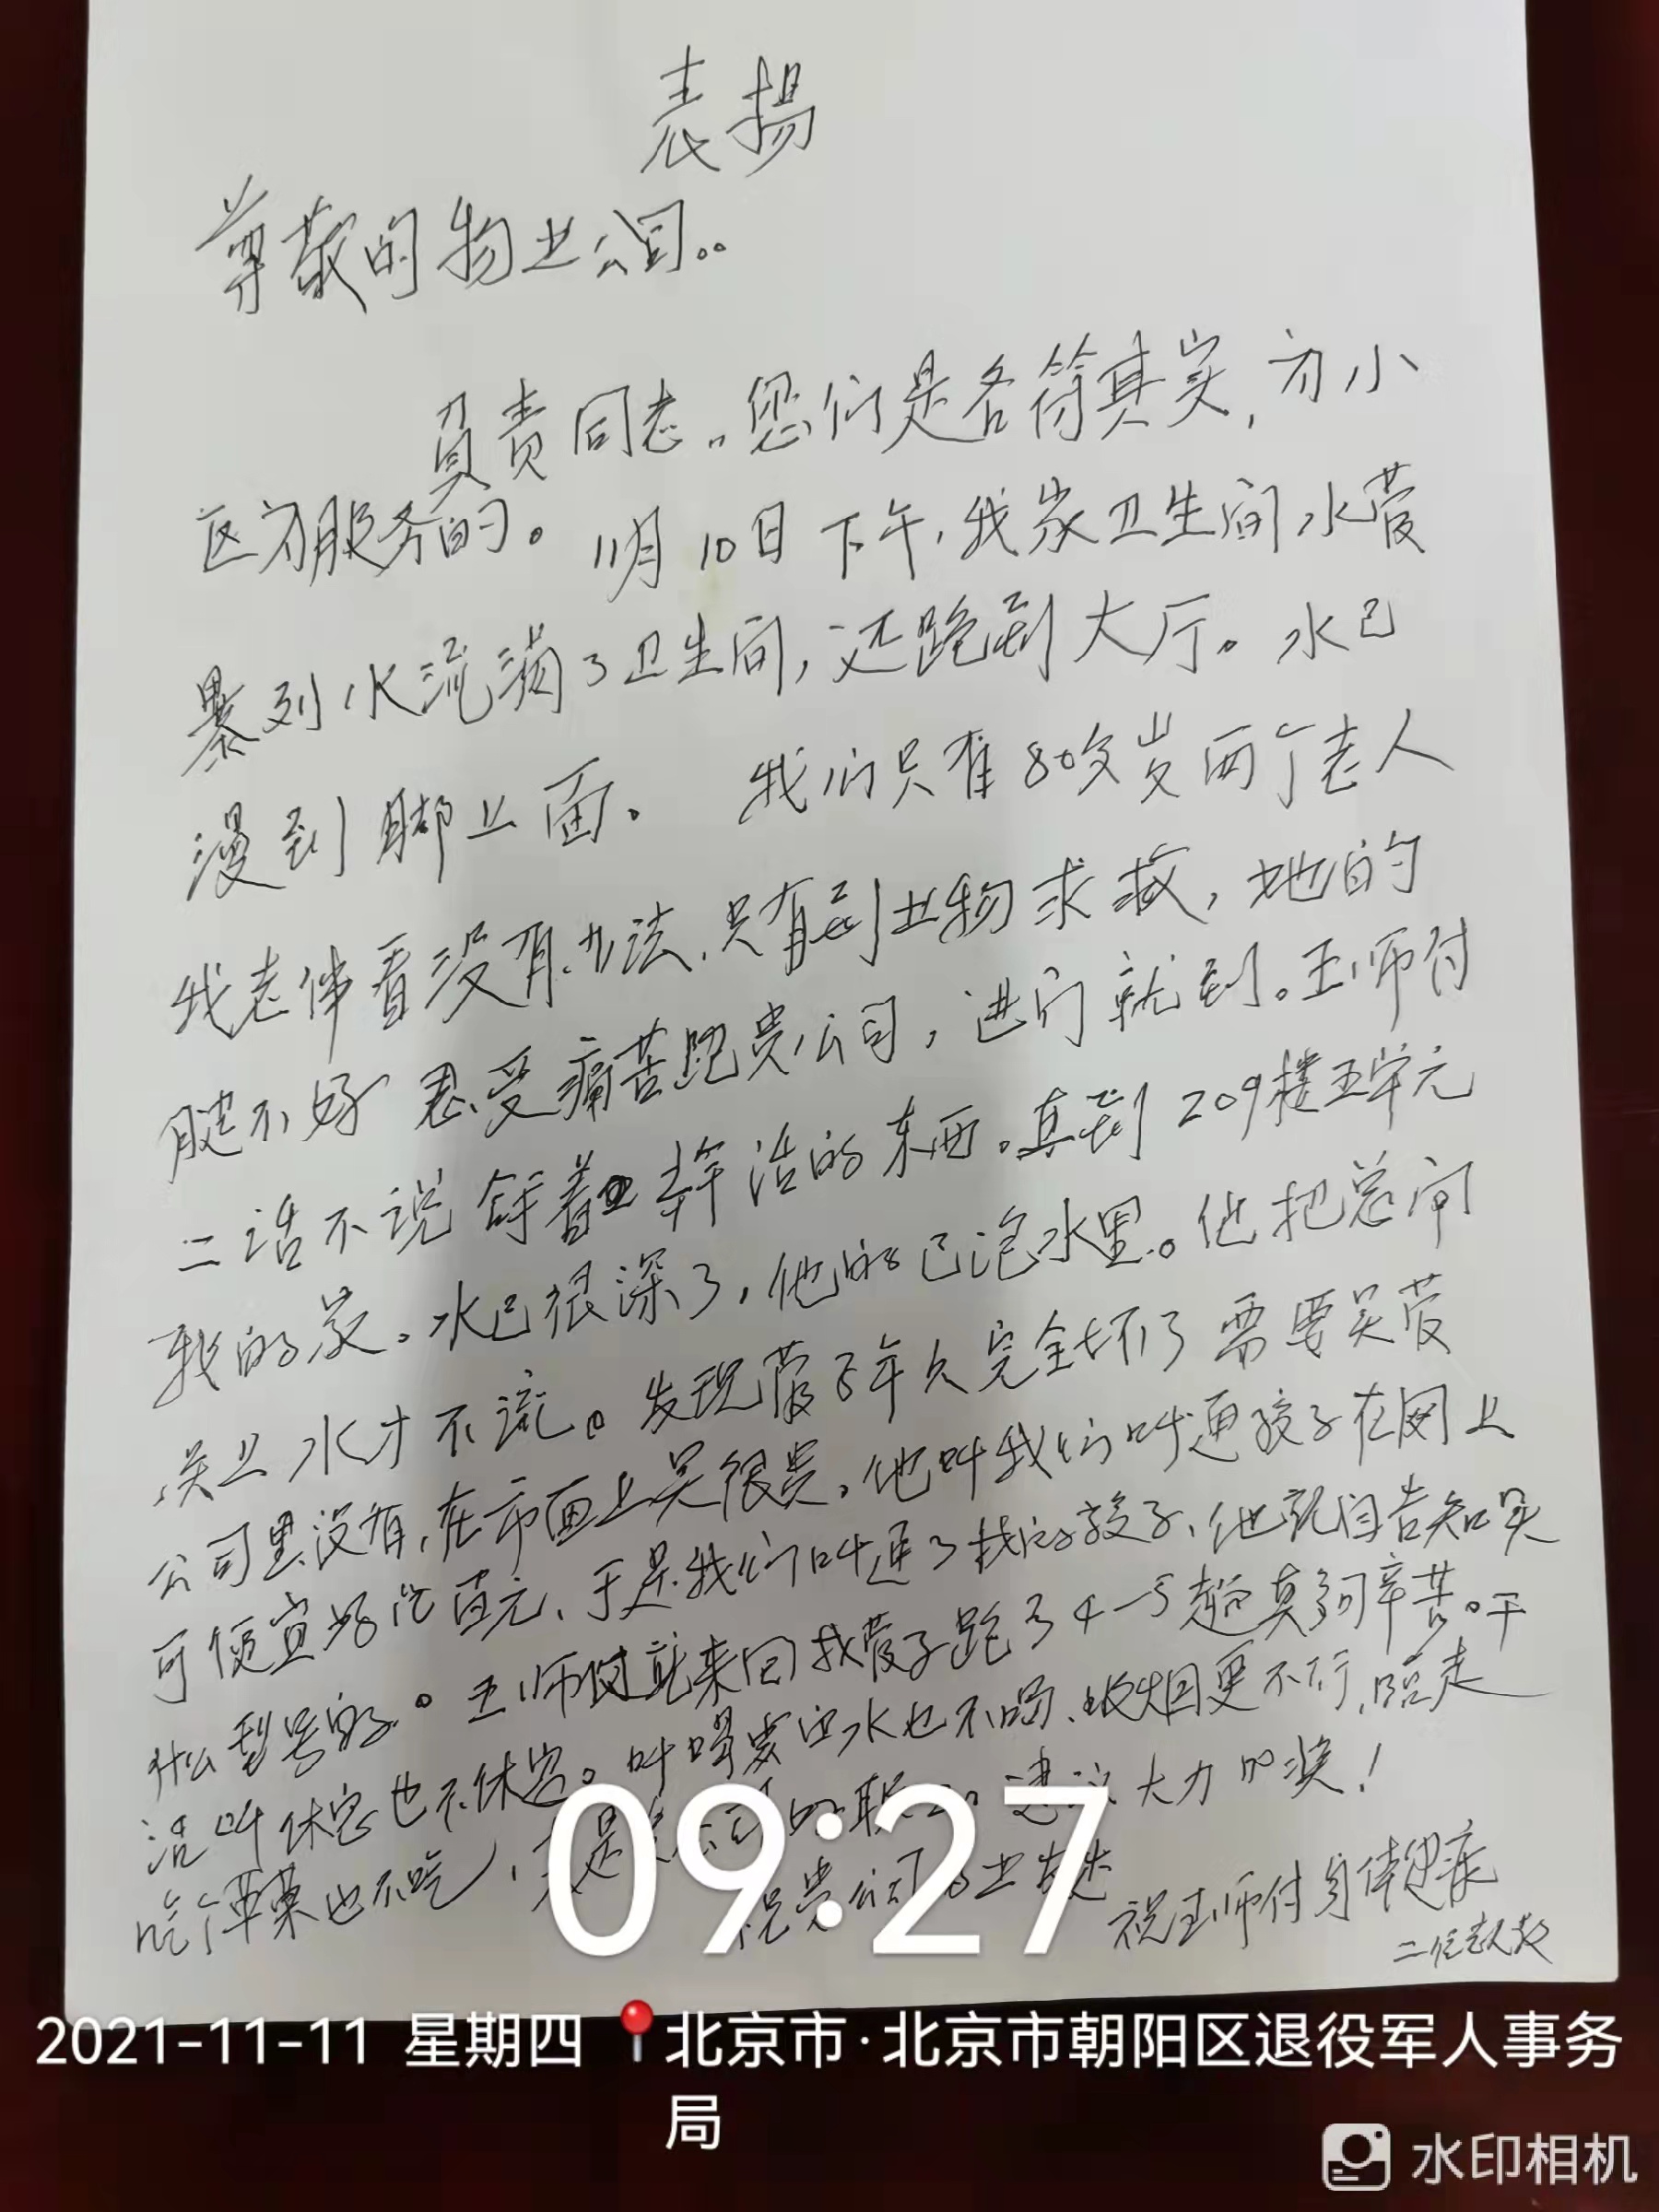 表扬
尊敬的物业公司..
负责同志..您们是名符其实,为小
区为服务的。11月10日下午,我家卫生间水管
暴列水流满了卫生间,还跑到大厅。水已
漫到脚上面。我们只有80多岁两个老人
我老伴看没有办法,只有到业物求救,她的
腿不好 忍受痛苦跑贵公司,进门就到。王师付
二话不说 拿着 干活的东西。直到209楼五单元
我的家。水已很深了,他的 已泡水里。他把总闸
关上 水才不流。发现管子年久完全坏了 需要买管
公司里没有,在市面上买很贵。他叫我们叫通孩子在网上
可便宜好几百元、于是我们叫通了我的孩子、他就自告知买
什么型号的。王师付就来回找管子跑了4-5趟真的辛苦。干
活叫休息也不休息。叫喝 水也不喝、吸烟更不行,临走
吃个苹果也不吃, 是 的职工。建议大力加奖!
祝贵公司 业发达
祝王师付身体健康
二位老人敬
09:27
2021-11-11 星期四 北京市·北京市朝阳区退役军人事务
局
水印相机